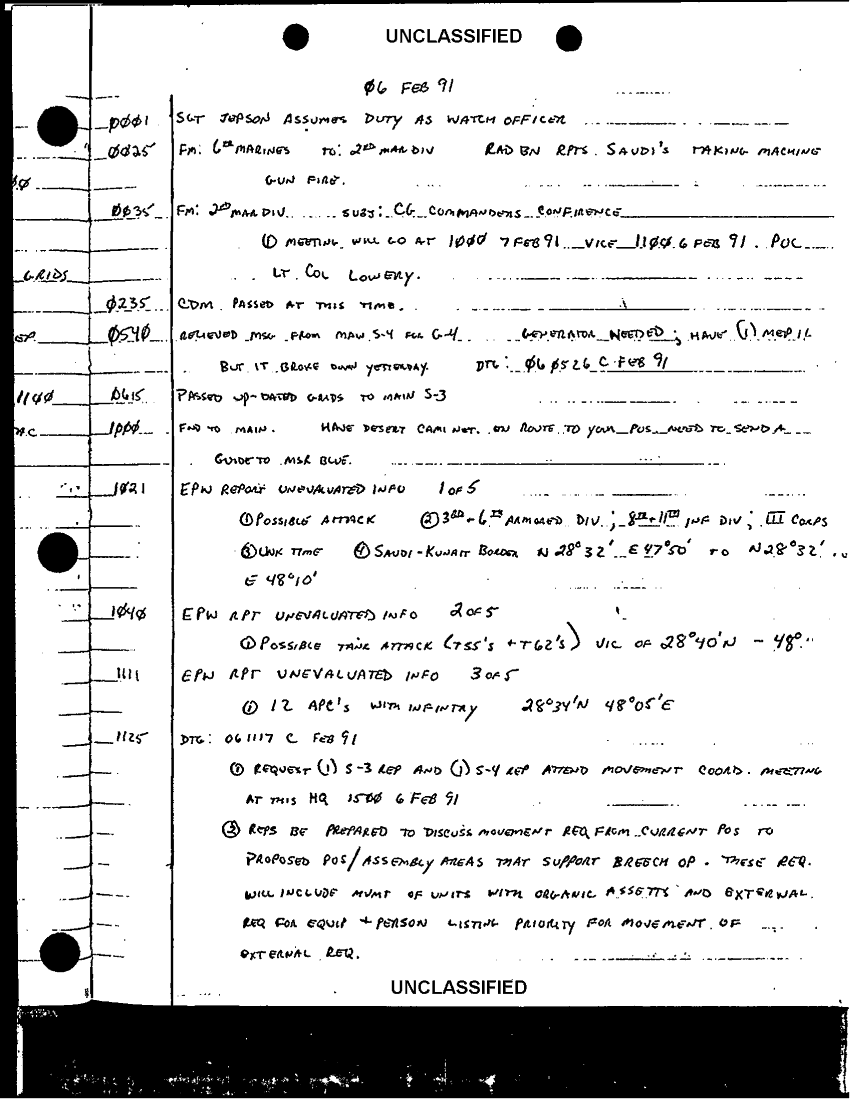 UNCLASSIFIED
Ø6 FEB 91
ØØØ1 SGT JEPSON ASSUMES DUTY AS WATCH OFFICER
ØØ25 FM: 6TH MARINES TO: 2ND MAR DIV RAD BN RPTS. SAUDI'S TAKING MACHINE
GUN FIRE.
ØØ35 FM: 2ND MAR DIV SUBJ: CG COMMANDERS CONFIRENCE
① MEETING WILL GO AT 1ØØØ 7 FEB 91 VICE 11ØØ 6 FEB 91. POC
GRIDS LT. COL LOWERY.
Ø235 COM PASSED AT THIS TIME.
Ø54Ø RELIEVED MSG FROM MAW S-4 FOR G-4 GENERATOR NEEDED; HAVE (1) MEP 11
BUT IT BROKE DOWN YESTERDAY. DTG: Ø6 Ø526 C FEB 91
11ØØ Ø615 PASSED UP-DATED GRIDS TO MAIN S-3
1ØØØ FWD TO MAIN. HAVE DESERT CAMI NET. ON ROUTE TO YOUR POS NEED TO SEND A
GUIDE TO MSR BLUE.
1Ø21 EPW REPORT UNEVALUATED INFO 1 OF 5
① POSSIBLE ATTACK ② 3RD + 6TH ARMORED DIV; 8TH + 11TH INF DIV; III CORPS
③ UNK TIME ④ SAUDI-KUWAIT BORDER N 28°32' E 47°50' TO N 28°32'
E 48°10'
1Ø4Ø EPW RPT UNEVALUATED INFO 2 OF 5
① POSSIBLE TANK ATTACK (T55'S + T62'S) VIC OF 28°40'N - 48°
1111 EPW RPT UNEVALUATED INFO 3 OF 5
① 12 APC'S WITH INFINTRY 28°34'N 48°05'E
1125 DTG: 061117 C FEB 91
① REQUEST (1) S-3 REP AND (1) S-4 REP ATTEND MOVEMENT COORD. MEETING
AT THIS HQ 15ØØ 6 FEB 91
② REPS BE PREPARED TO DISCUSS MOVEMENT REQ FROM CURRENT POS TO
PROPOSED POS/ASSEMBLY AREAS THAT SUPPORT BREECH OP. THESE REQ.
WILL INCLUDE MVMT OF UNITS WITH ORGANIC ASSETTS AND EXTERNAL
REQ FOR EQUIP + PERSON LISTING PRIORITY FOR MOVEMENT OF
EXTERNAL REQ.
UNCLASSIFIED